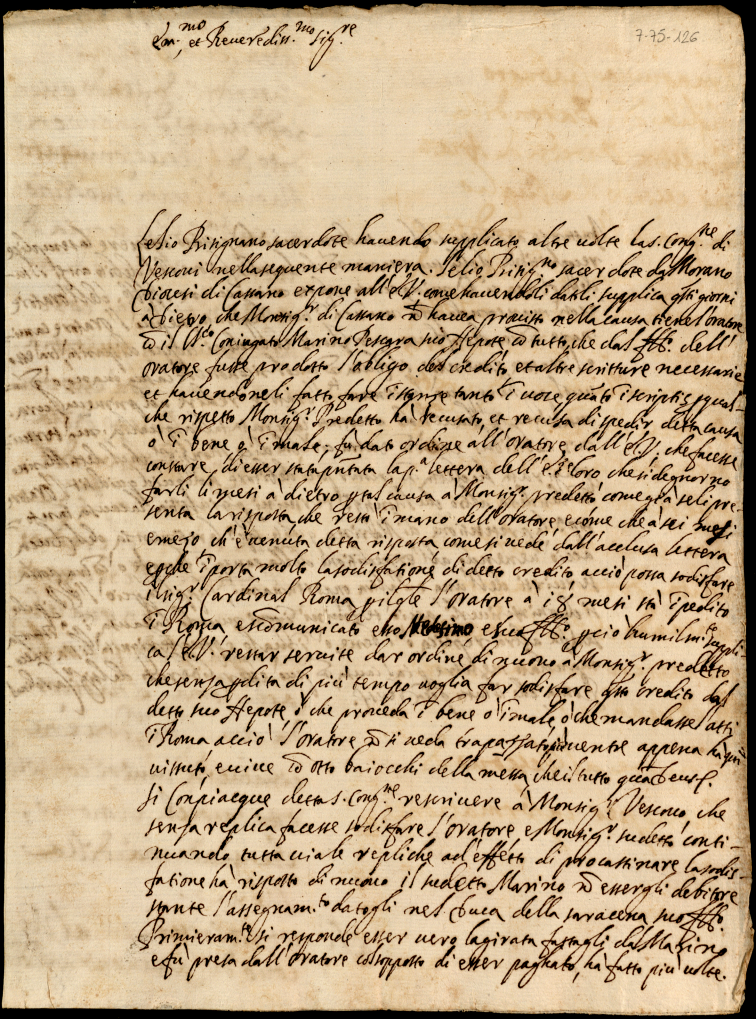 Em.mo, et Reverediss.mo Sig.re
7-75-126
Lelio Risignano sacerdote hauendo supplicato altre uolte la s. Cong.ne di
Vescoui nella sequente maniera. Lelio Risig.no sacerdote da Morano
Diocesi di Cassano expone all' come hauendoli datili supplica giorni
à dietro, che Monsig.r di Cassano nō hauea prouisto nella causa tiene l'oratore
cō il Coniugato Marino Pescara suo Nepote cō tutto, che dal dell'
oratore fusse prodotto l'obligo del credito et altre scritture necessarie
et hauendoneli fatto fare istanze tanto ī uoce quāto ī scriptis qual-
che rispetto Monsig.r Predetto hà recusato, et recusa di spedir detta causa
ò ī bene ò ī male, fù dato ordine all'oratore dall' che facesse
constare di esser stata la p.a lettera dell' loro, che si degnorno
farli li mesi à dietro tal causa à Monsig.r predetto come già se li pre-
senta la risposta, che restò ī mano dell'oratore, e come che à sei mesi
emezo ch'è uenuta detta risposta come si uede dall'acclusa lettera
e che īporta molto la sodisfatione di detto credito acciò possa sodisfare
il sig.r Cardinal Roma l'oratore à 18 mesi stà īpedito
ī Roma escōmunicato esso e suo pciò humilm.te suppli-
ca restar seruite dar ordine di nuouo à Monsig.r predetto
che senza pdita di più tempo uoglia far sodisfare credito dal
detto suo Nepote, ò che proueda ī bene ò ī male, ò che mandasse l'atti
ī Roma acciò l'oratore nō si ueda appena hà
uissuto, e uiue cō otto baiocchi della messa che il tutto
Si Conpiacque detta s. Cong.ne rescriuere à Monsig.r Vescouo, che
senza replica facesse sodisfare l'oratore, e Monsig.r sudetto conti-
nuando tutta uia le repliche ad effetto di procastinare la sodis-
fatione hà risposto di nuouo il sudetto Marino nō essergli debitore
stante l'assegnam.to datogli nel Duca della saracena suo
Primieram.te si responde esser uero la girata fattagli dal Marino
e fù presa dall'oratore cō supposto di esser pagato, hà fatto più uolte.